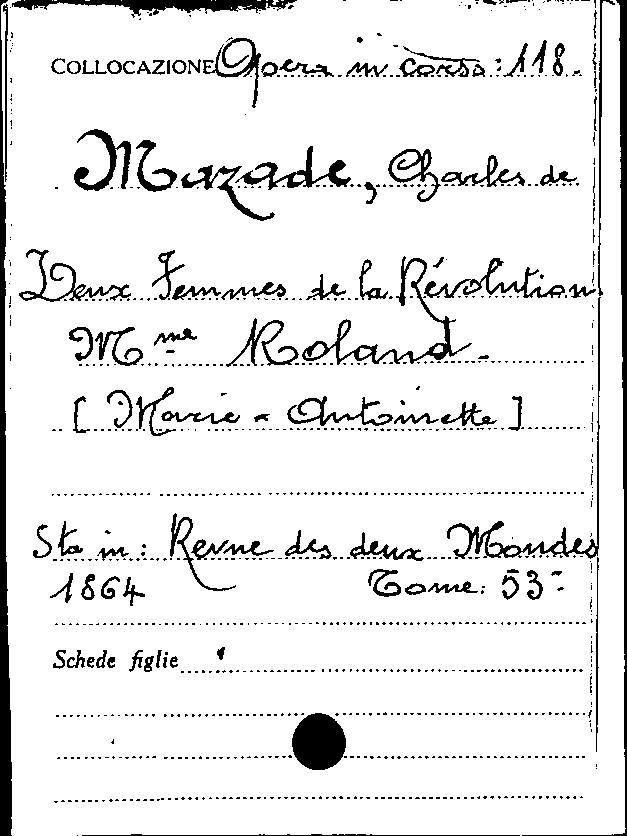 COLLOCAZIONE Opera in corso: 118.
Mazade, Charles de
Deux Femmes de la Révolution
Mme Roland.
[Marie-Antoinette]
Sta in: Revue des deux Mondes
1864 Tome: 53-
Schede figlie